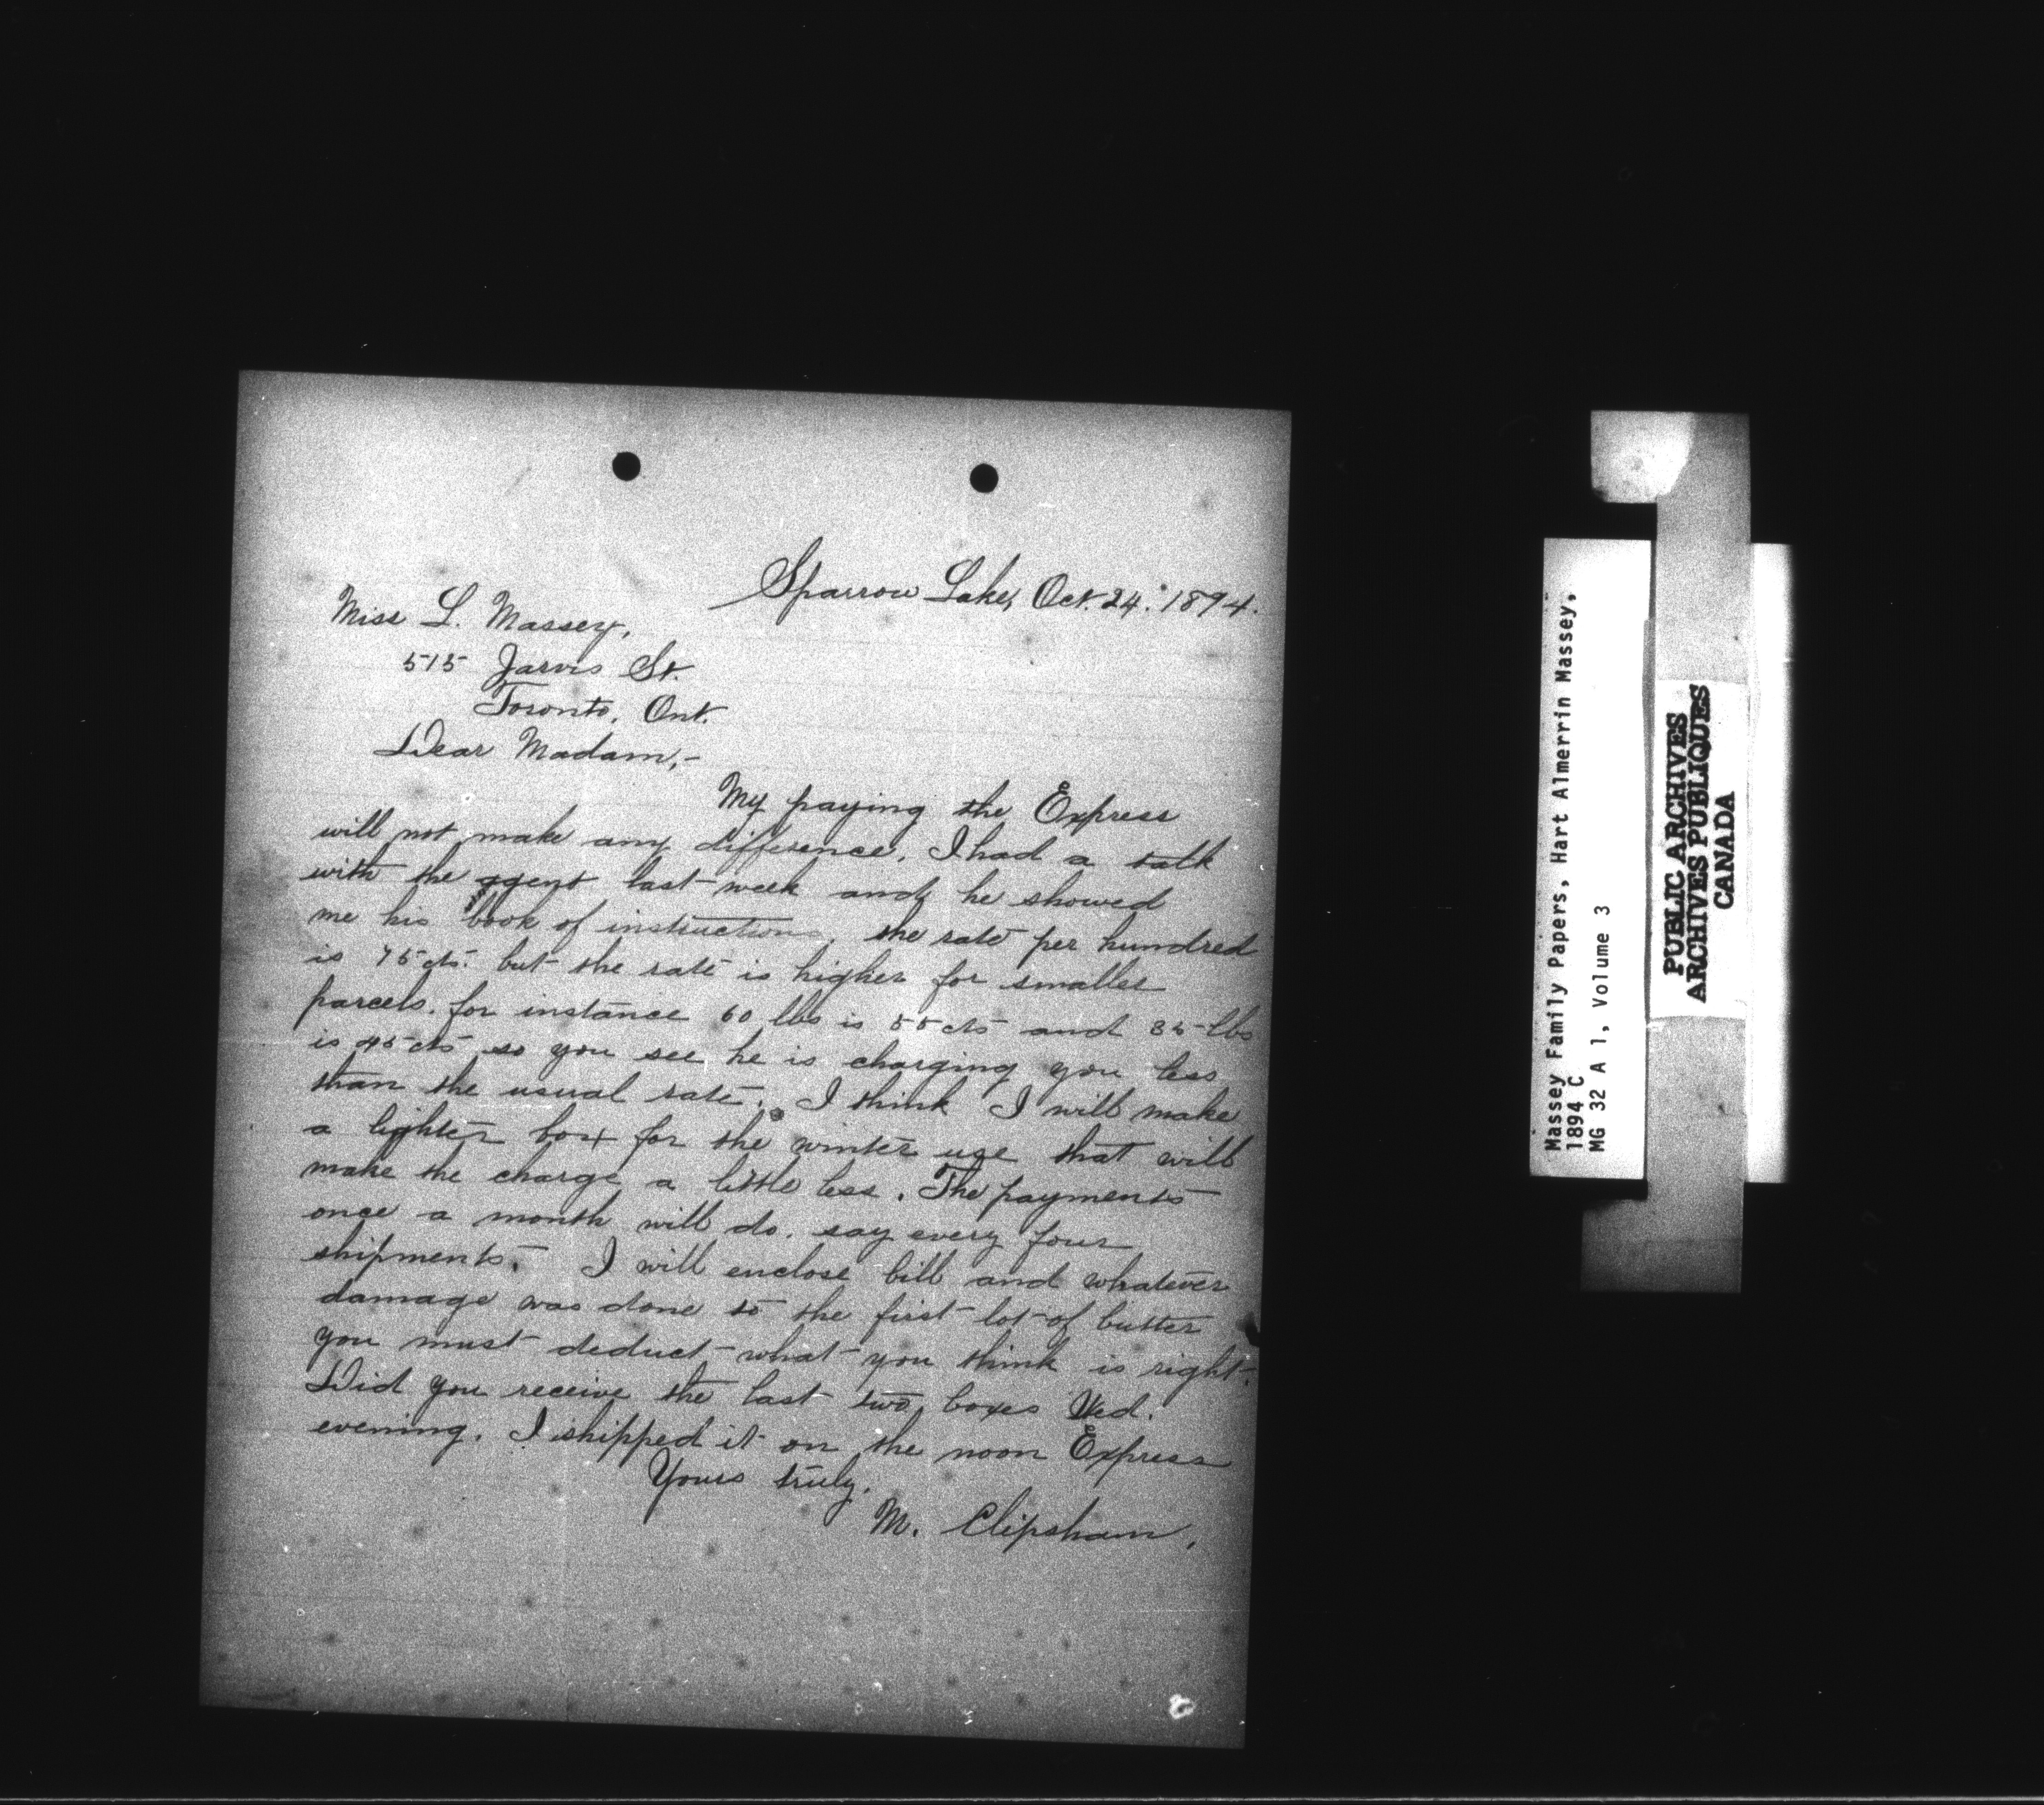 Sparrow Lake, Oct. 24. 1894.
Miss L. Massey,
515 Jarvis St.
Toronto, Ont.
Dear Madam,-
My paying the Express
will not make any difference. I had a talk
with the agent last week and he showed
me his book of instructions. the rate per hundred
is 75 cts. but the rate is higher for smaller
parcels. for instance 60 lbs is 55 cts and 35 lbs
is 45 cts so you see he is charging you less
than the usual rate. I think I will make
a lighter box for the winter use that will
make the charge a little less. The payments
once a month will do. say every four
shipments. I will enclose bill and whatever
damage was done to the first lot of butter
you must deduct what you think is right.
Did you receive the last two boxes Wed.
evening. I shipped it on the noon Express
Yours truly,
M. Clipsham,
Massey Family Papers, Hart Almerrin Massey,
1894 C
MG 32 A 1, Volume 3
PUBLIC ARCHIVES
ARCHIVES PUBLIQUES
CANADA